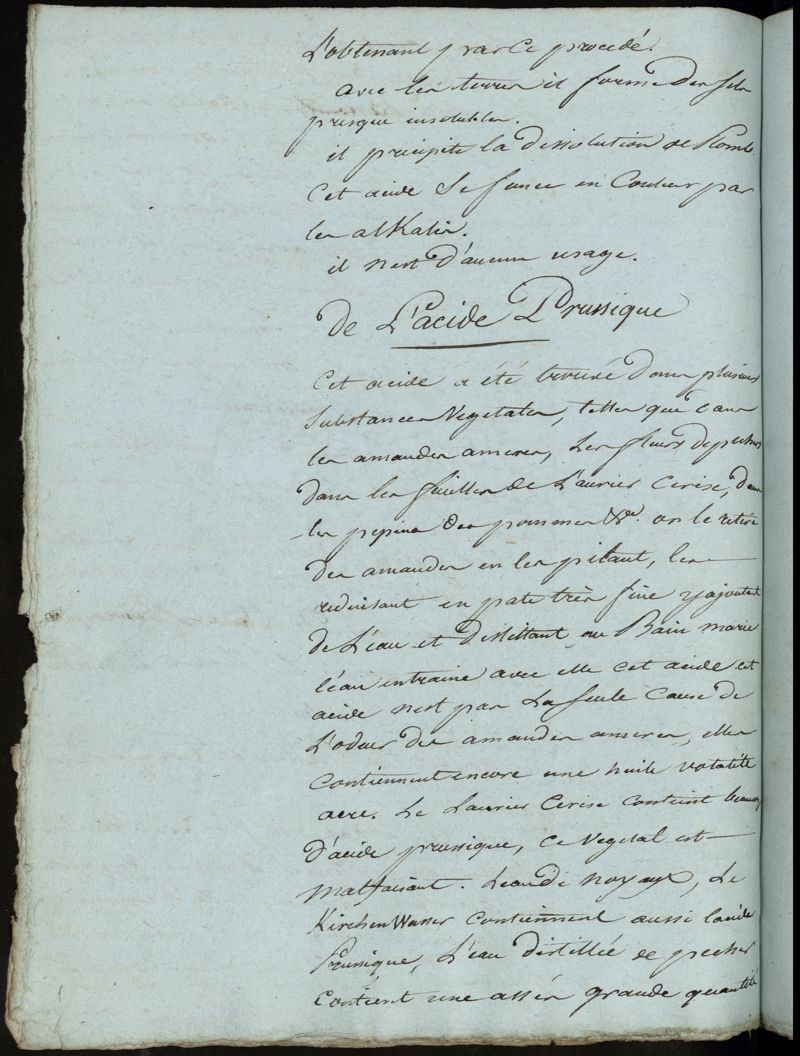 L'obtenant par ce procedé.
avec les terres il forme des sels
presque insolubles.
il precipite la dissolution de Plomb
Cet acide se fonce en Couleur par
les alKalis.
il n'est d'aucun usage.
De L'acide Prussique
Cet acide a été trouvé dans plusieurs
substances Vegetales, telles que dans
les amandes ameres, les fleurs de pecher
dans les feuilles de Laurier Cerise, dans
les pepins des pommes &ca. on le retire
des amandes en les pilant, les
reduisant en pate très fine y ajoutant
de L'eau et distillant au Bain marie
l'eau entraine avec elle cet acide cet
acide n'est pas La seule Cause de
L'odeur des amandes ameres, elles
contiennent encore une huile volatile
acre. Le Laurier Cerise contient beaucoup
d'acide prussique, ce vegetal est
malfaisant. L'eau de noyaux, Le
Kirchen Wasser contiennent aussi l'acide
Prussique, L'eau distillée de pecher
contient une assés grande quantité